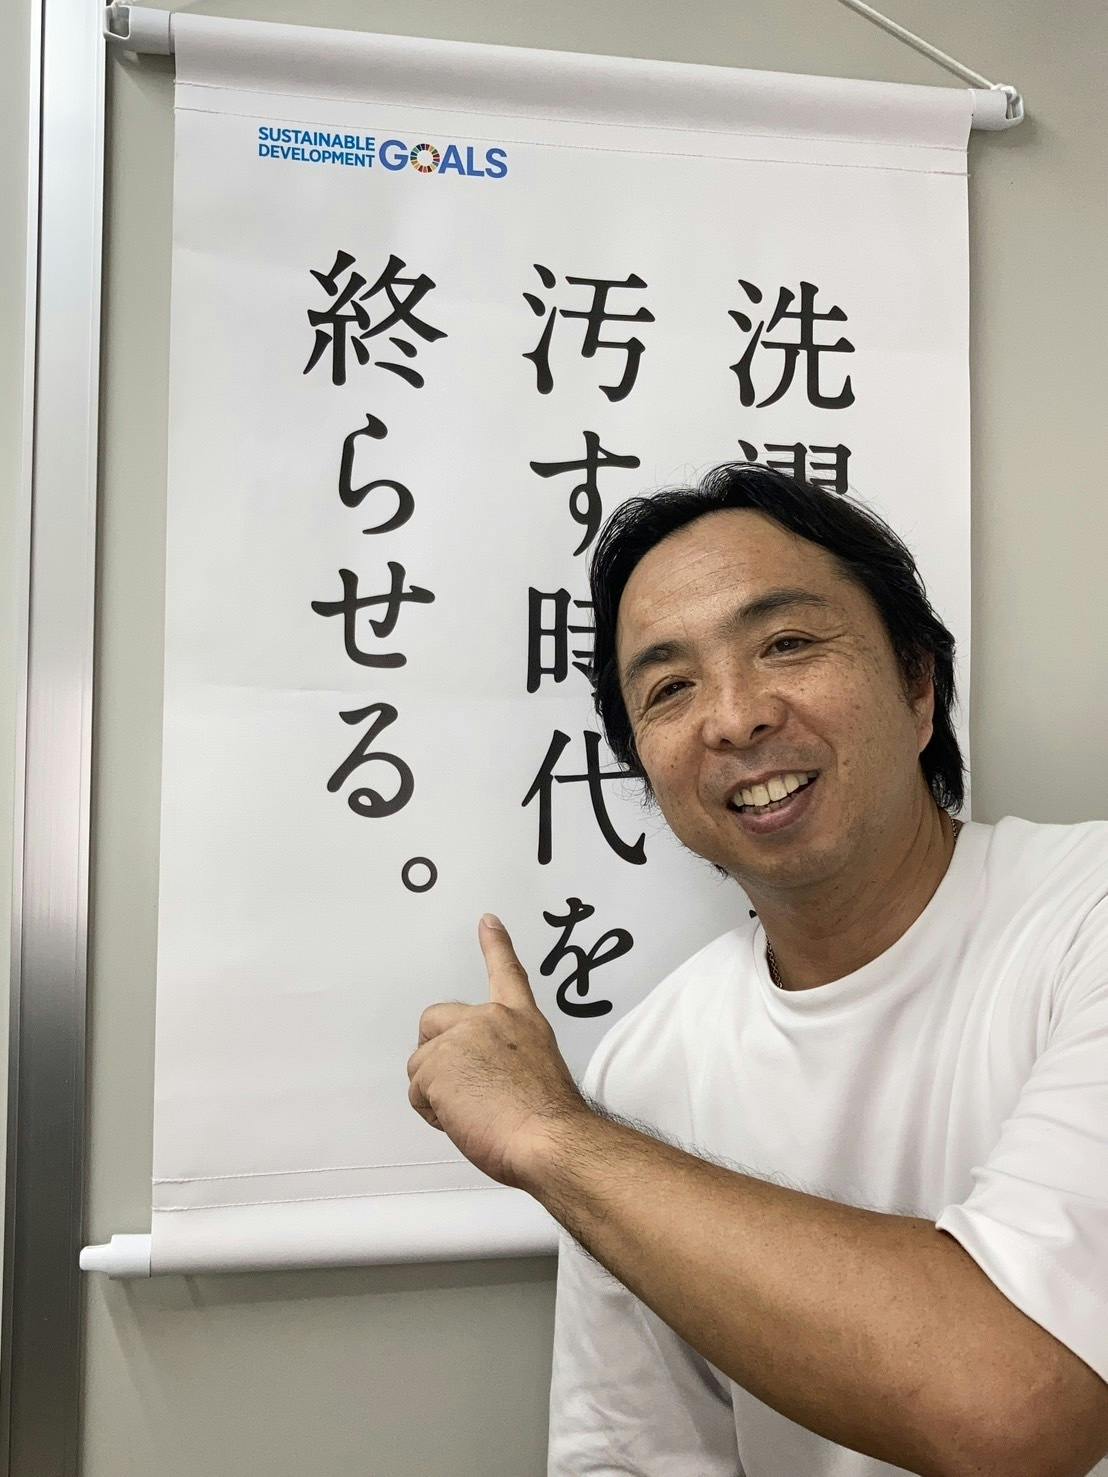 SUSTAINABLE
DEVELOPMENT GOALS
洗濯
汚す時代を
終らせる。